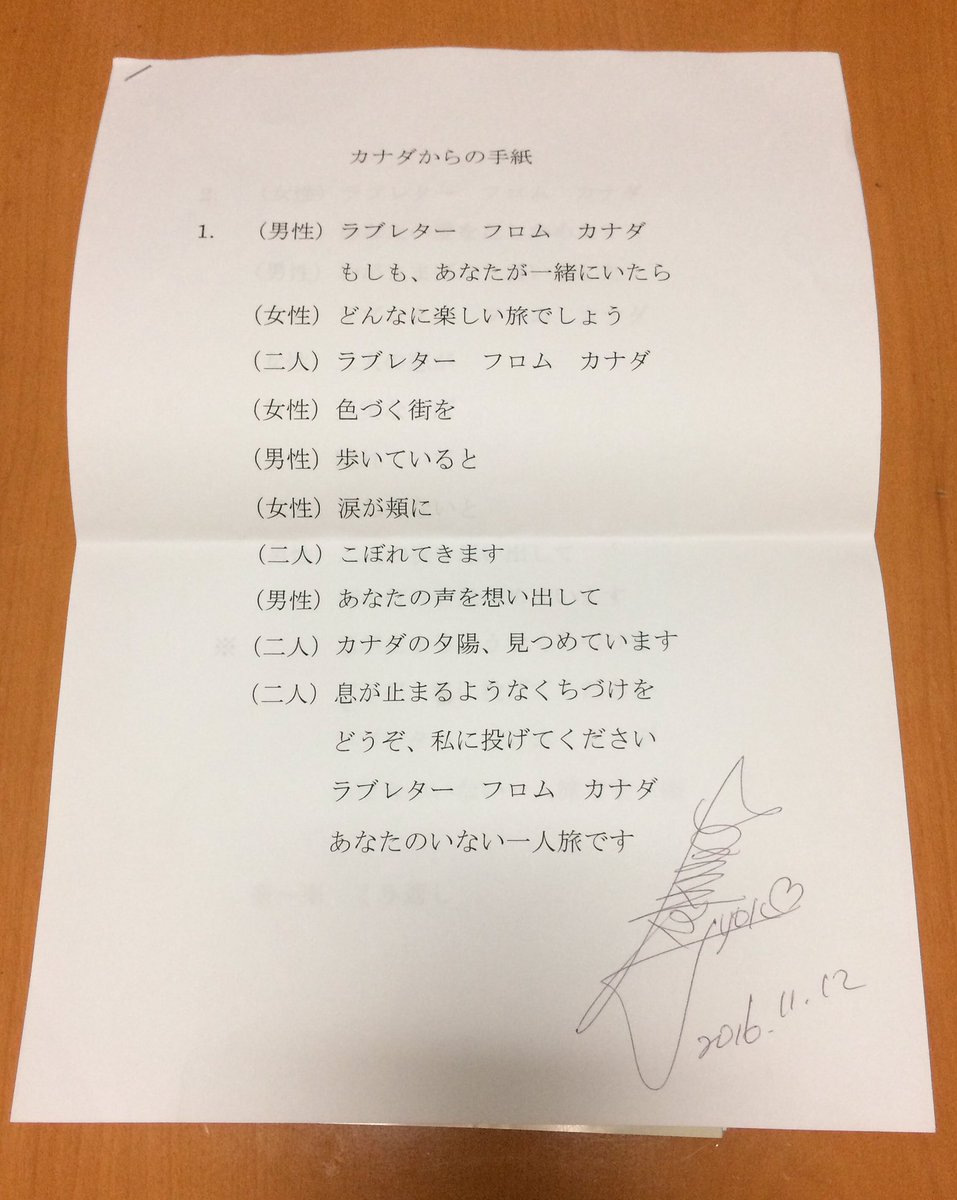 カナダからの手紙
1. （男性）ラブレター　フロム　カナダ
もしも、あなたが一緒にいたら
（女性）どんなに楽しい旅でしょう
（二人）ラブレター　フロム　カナダ
（女性）色づく街を
（男性）歩いていると
（女性）涙が頬に
（二人）こぼれてきます
（男性）あなたの声を想い出して
（二人）カナダの夕陽、見つめています
（二人）息が止まるようなくちづけを
どうぞ、私に投げてください
ラブレター　フロム　カナダ
あなたのいない一人旅です
2016.11.12